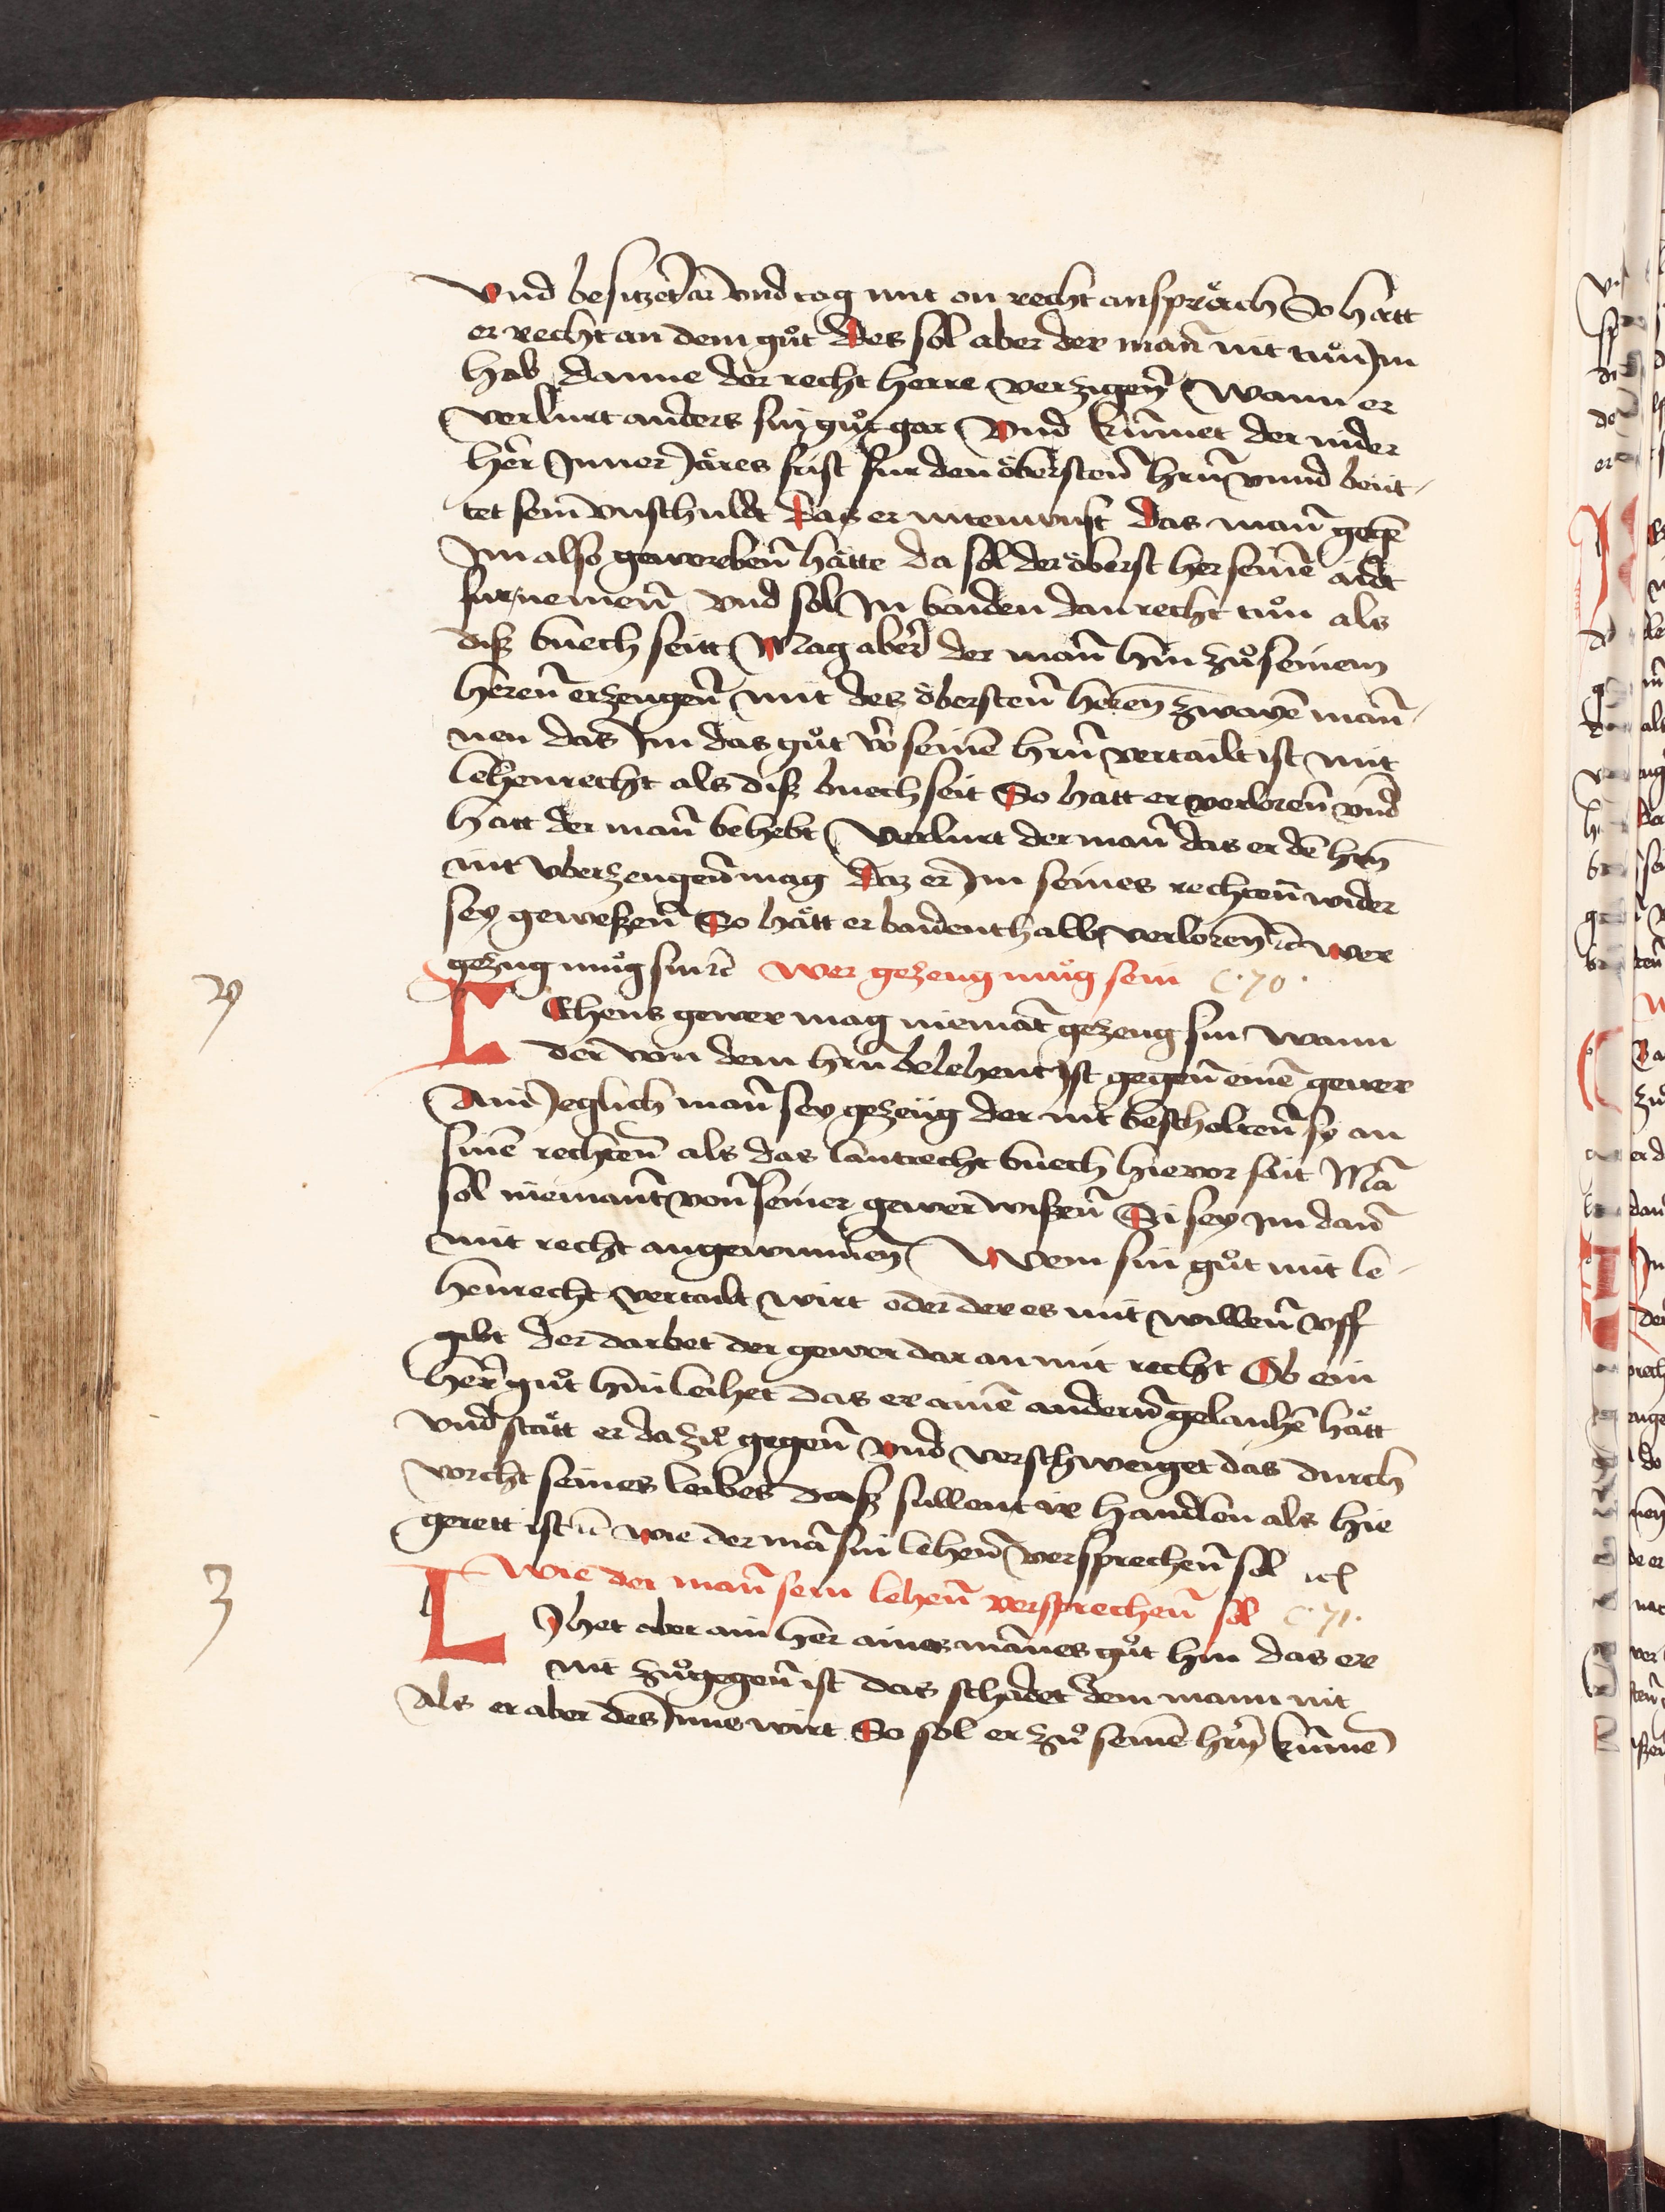 vnd besitzet Jar vnd tag mit on recht ansprǎch So hatt
er recht an dem gůt Des sol aber der man̄ nit tůn Im
hab danne der recht herre verzigen̄ Wann er
verlurt anders sin gůt gar Vnd kum̄et der nider
her̄ Inner Jåres frist fur den öbersten̄ hrn̄ vnnd beüt-
tet sein vnschuldt Das er nit enwust Das man̄ gege̅
Im also geworben̄ hätte da sol der öberst her seine̅ aidt
fur nemen̄ vnd sol In baiden dan recht tůn als
diß buech seitt Mag aber̄ der man̄ hin zů seinem
heren̄ erzeugen̄ mit des öbersten̄ heren̄ zwaye̅ man̄-
nen das Im das gůt vo̅ seine̅ hrn̄ vertailt ist mit
lehenrecht als diß buech seit So hatt er verloren̄ vnd
hatt der man̄ behebt Verlurt der man̄ das er de̅ hrn̄
nit vberzeugen̄ mag Daz er Im seines rechten̄ wider
sey geweßen̄ So hǎtt er baidenthalb verloren̄ rc̄ wer
gezug mug sin rc̄ Wer gezeug můg sein C·70·
LEhens gewer mag nieman̄t gezeug sin wann
der von dem hrn̄ belehent ist gegen̄ eine̅ gewer
Ain Jeglich man̄ sey gezeüg der nit bescholten̄ sy an
sine̅ rechten̄ als das lantrecht buech hieuor sait Ma̅
sol nieman̄t von̄ seiner gewer wißen̄ Si sey im dan̄
mit recht angewunnen̄ Wem sin gůt mit le-
henrecht vertailt wirt oder der es mit willen̄ vff
gibt Der darbet der gewer dar an mit recht Ob ein
her̄ gůt hin leihet das er aine̅ andern̄ gelauhe̅ hǎtt
vnd stǎtt er da zů gegen̄ vnd verschweiget das durch
vorcht seines leibes daß sullent ir handlen als hie
gerett ist rc̄ wie der ma̅ sin lehen̄ versprechen̄ sol rc̄
Wie der man̄ sein lehen̄ versprechen̄ sol C·71·
LIhet aber ain her̄ aines mannes gůt hin das ere
nit zůgegen̄ ist das schadet dem mann nit
Als er aber des Inne wirt So sol er zů seine̅ hrn̄ kum̄e̅